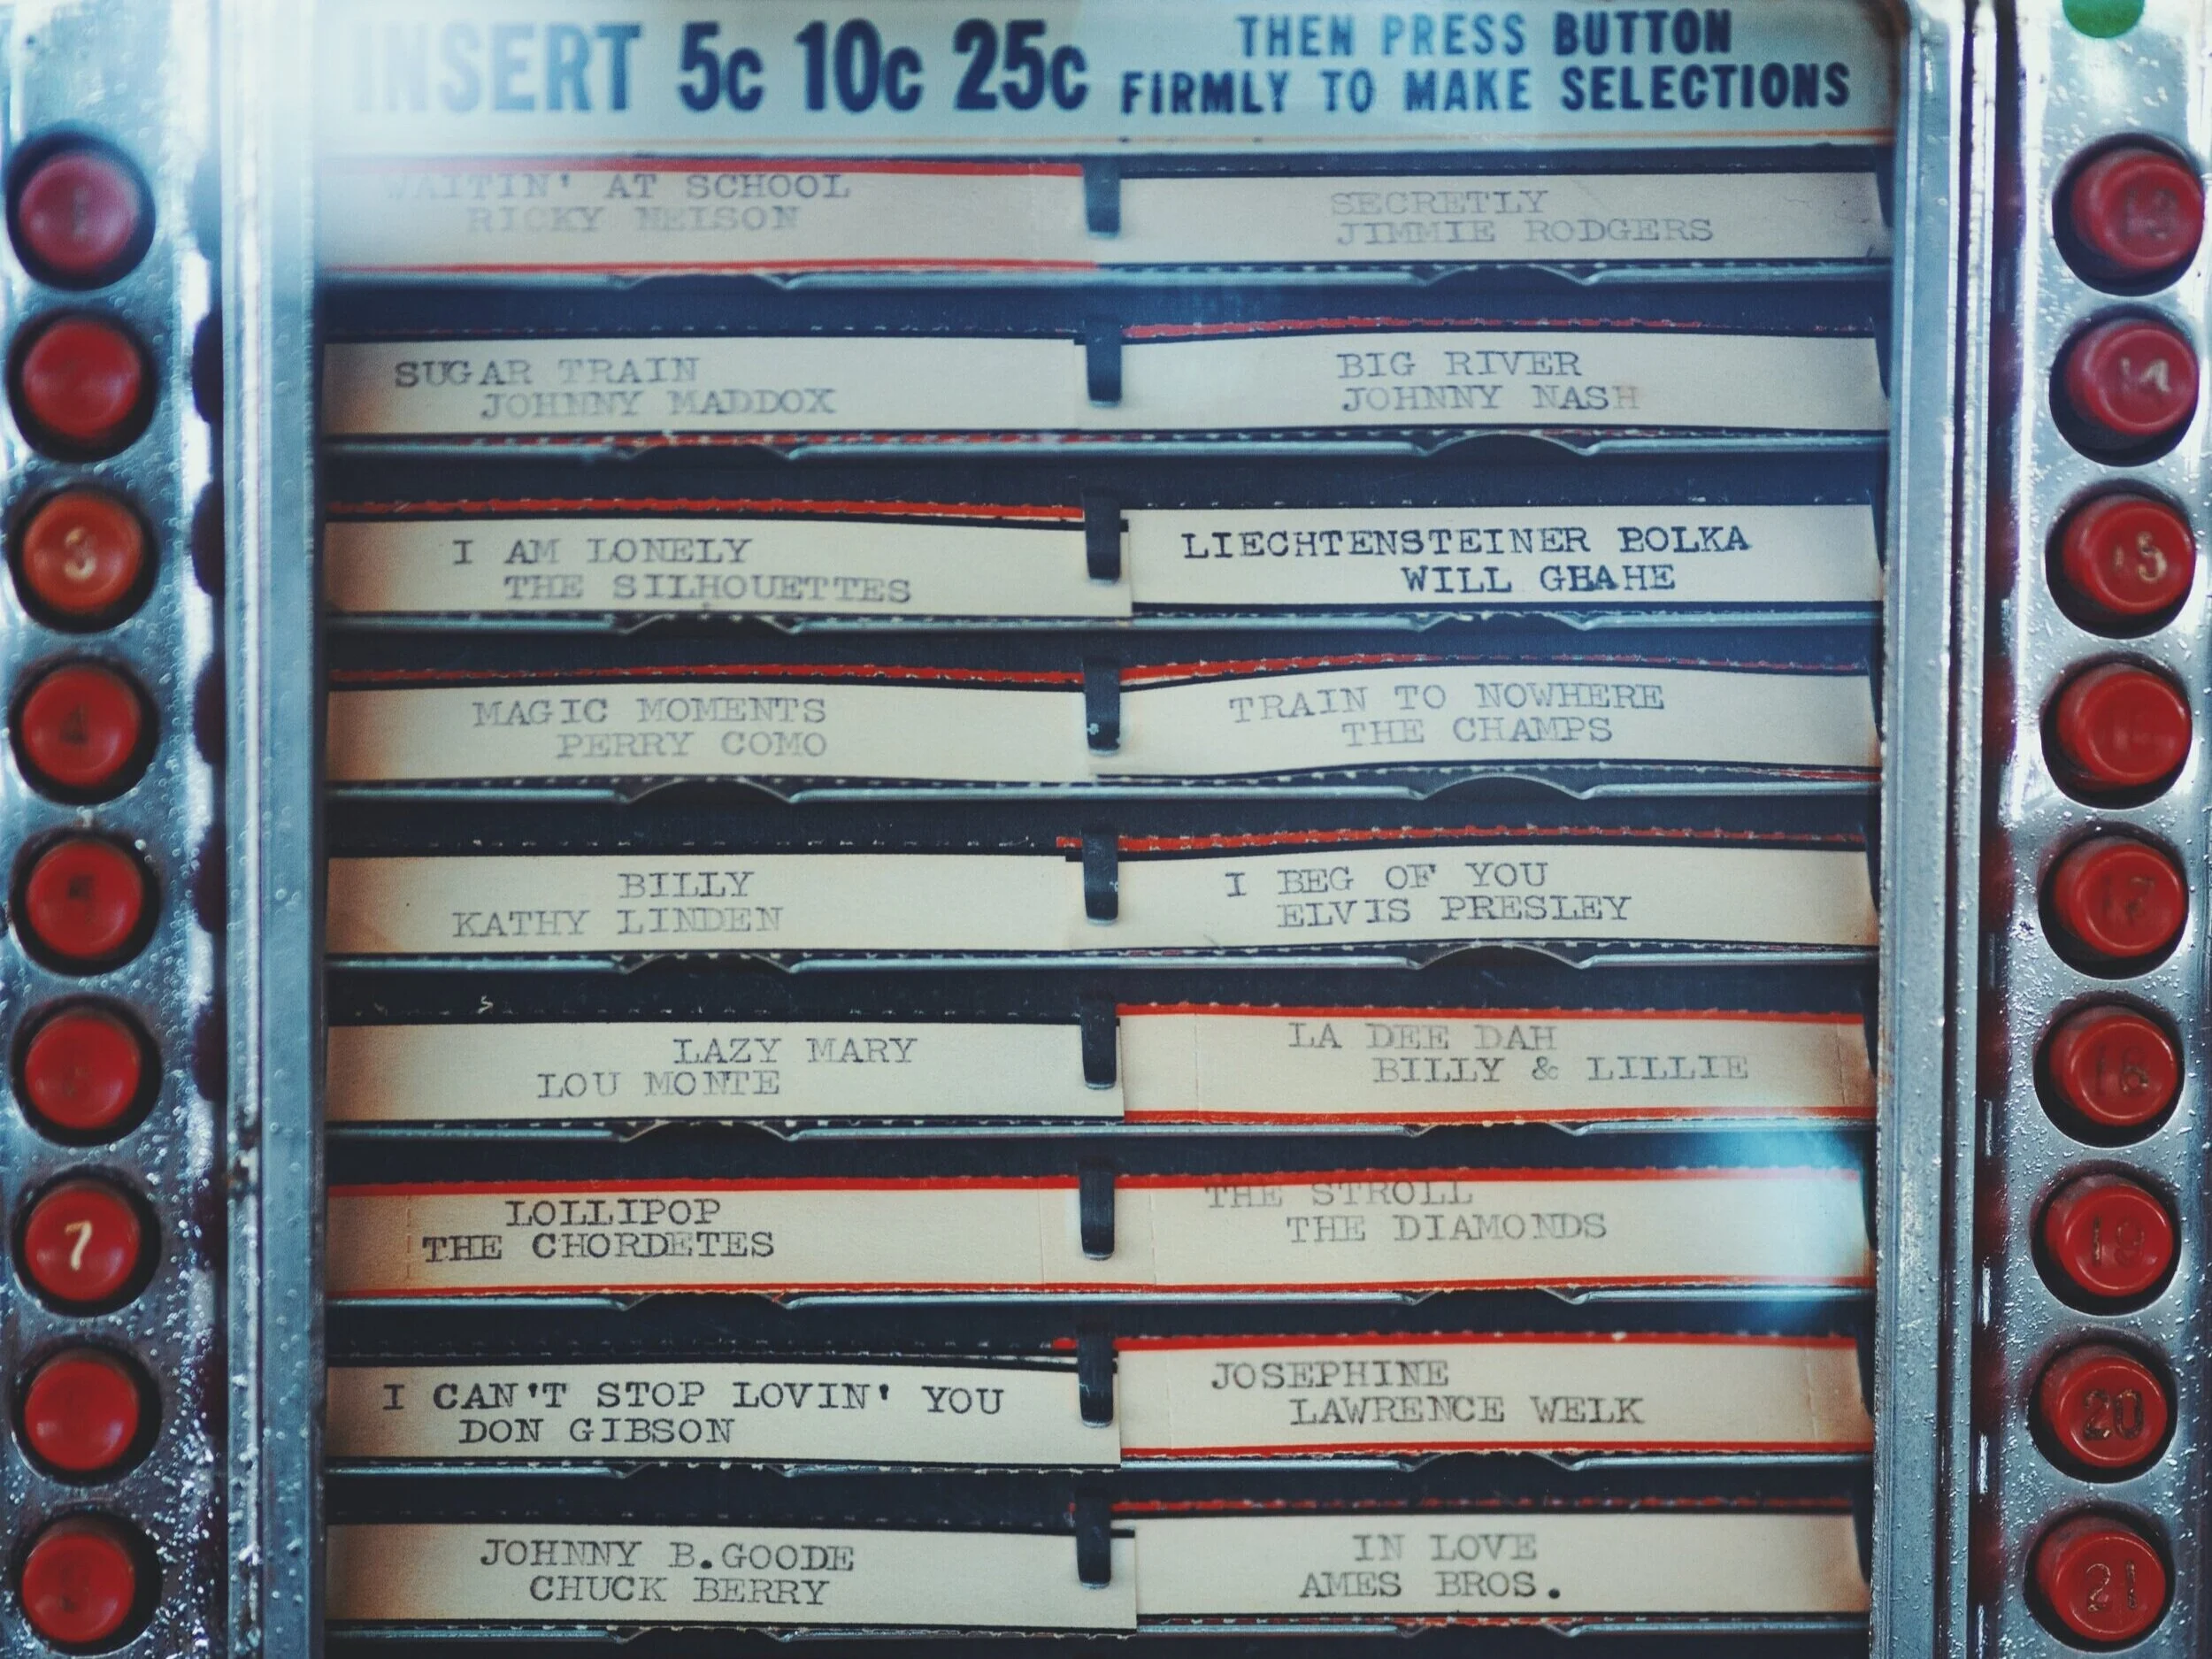 INSERT 5c 10c 25c
THEN PRESS BUTTON
FIRMLY TO MAKE SELECTIONS
WAITIN' AT SCHOOL
RICKY NELSON
SECRETLY
JIMMIE RODGERS
13
SUGAR TRAIN
JOHNNY MADDOX
BIG RIVER
JOHNNY NASH
14
3
I AM LONELY
THE SILHOUETTES
LIECHTENSTEINER POLKA
WILL GHAHE
15
4
MAGIC MOMENTS
PERRY COMO
TRAIN TO NOWHERE
THE CHAMPS
BILLY
KATHY LINDEN
I BEG OF YOU
ELVIS PRESLEY
17
LAZY MARY
LOU MONTE
LA DEE DAH
BILLY & LILLIE
18
7
LOLLIPOP
THE CHORDETES
THE STROLL
THE DIAMONDS
19
I CAN'T STOP LOVIN' YOU
DON GIBSON
JOSEPHINE
LAWRENCE WELK
20
JOHNNY B.GOODE
CHUCK BERRY
IN LOVE
AMES BROS.
21